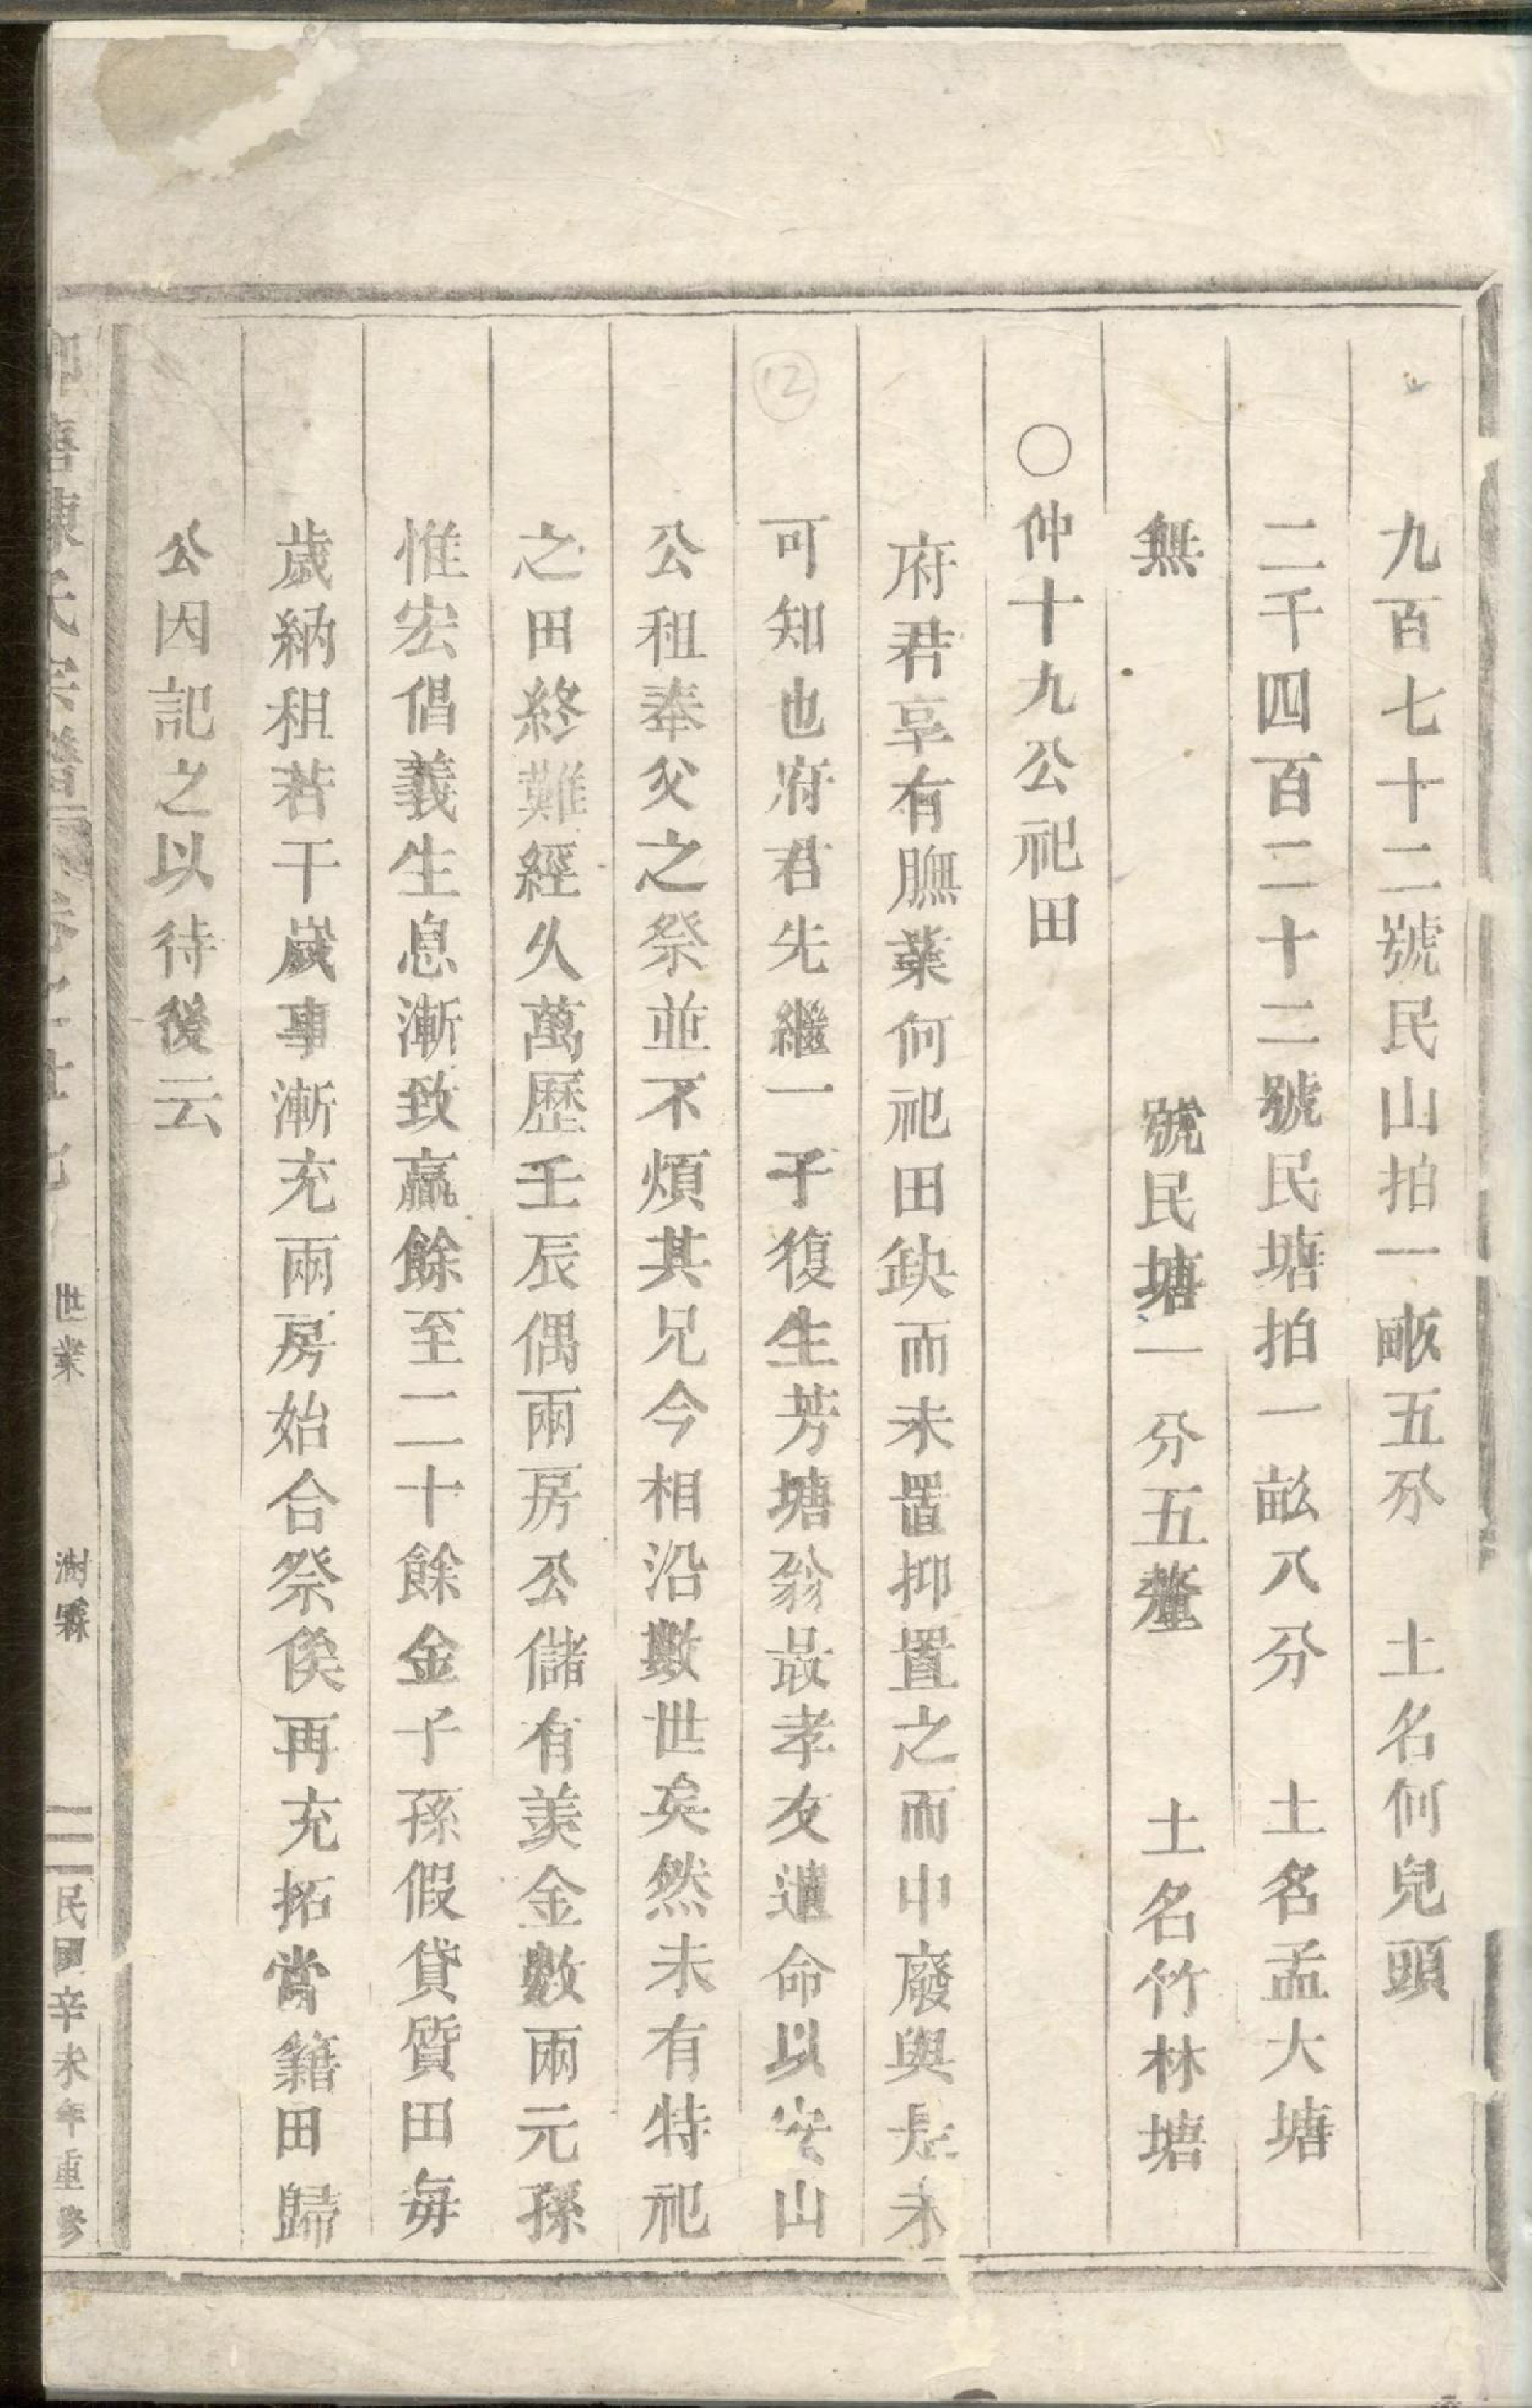 九百七十二號民山拍一畝五分　土名何兒頭
二千四百二十二號民塘拍一畝八分　土名孟大塘
無　號民塘一分五釐　土名竹林塘
○仲十九公祀田
府君享有膴業何祀田缺而未置抑置之而中廢與是未
可知也府君先繼一子復生芳塘翁最孝友遺命以安山
公租奉父之祭並不煩其兄今相沿數世矣然未有特祀
之田終難經久萬歷壬辰偶兩房公儲有羡金數兩元孫
惟宏倡義生息漸致羸餘至二十餘金子孫假貸質田每
歲納租若干歲事漸充兩房始合祭俟再充拓嘗籍田歸
公因記之以待後云
陳氏宗譜　世業　澍霖　二　民國辛未年重修
12